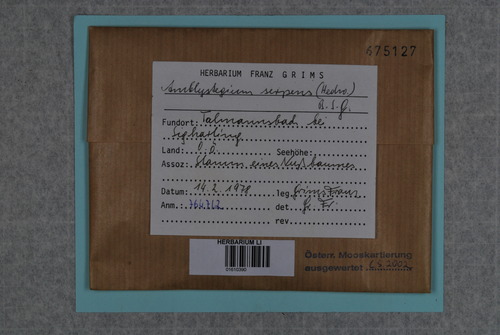 675127
HERBARIUM FRANZ GRIMS
Amblystegium serpens (Hedw.)
B. S. G.
Fundort: Talmannsbach bei
Sigharting
Land: O.Ö. Seehöhe:
Assoz: Stamm eines Nußbaumes
Datum: 14.2.1978 leg. Grims Franz
Anm. det. Gr. Fr.
rev.
HERBARIUM LI
Österr. Mooskartierung
ausgewertet